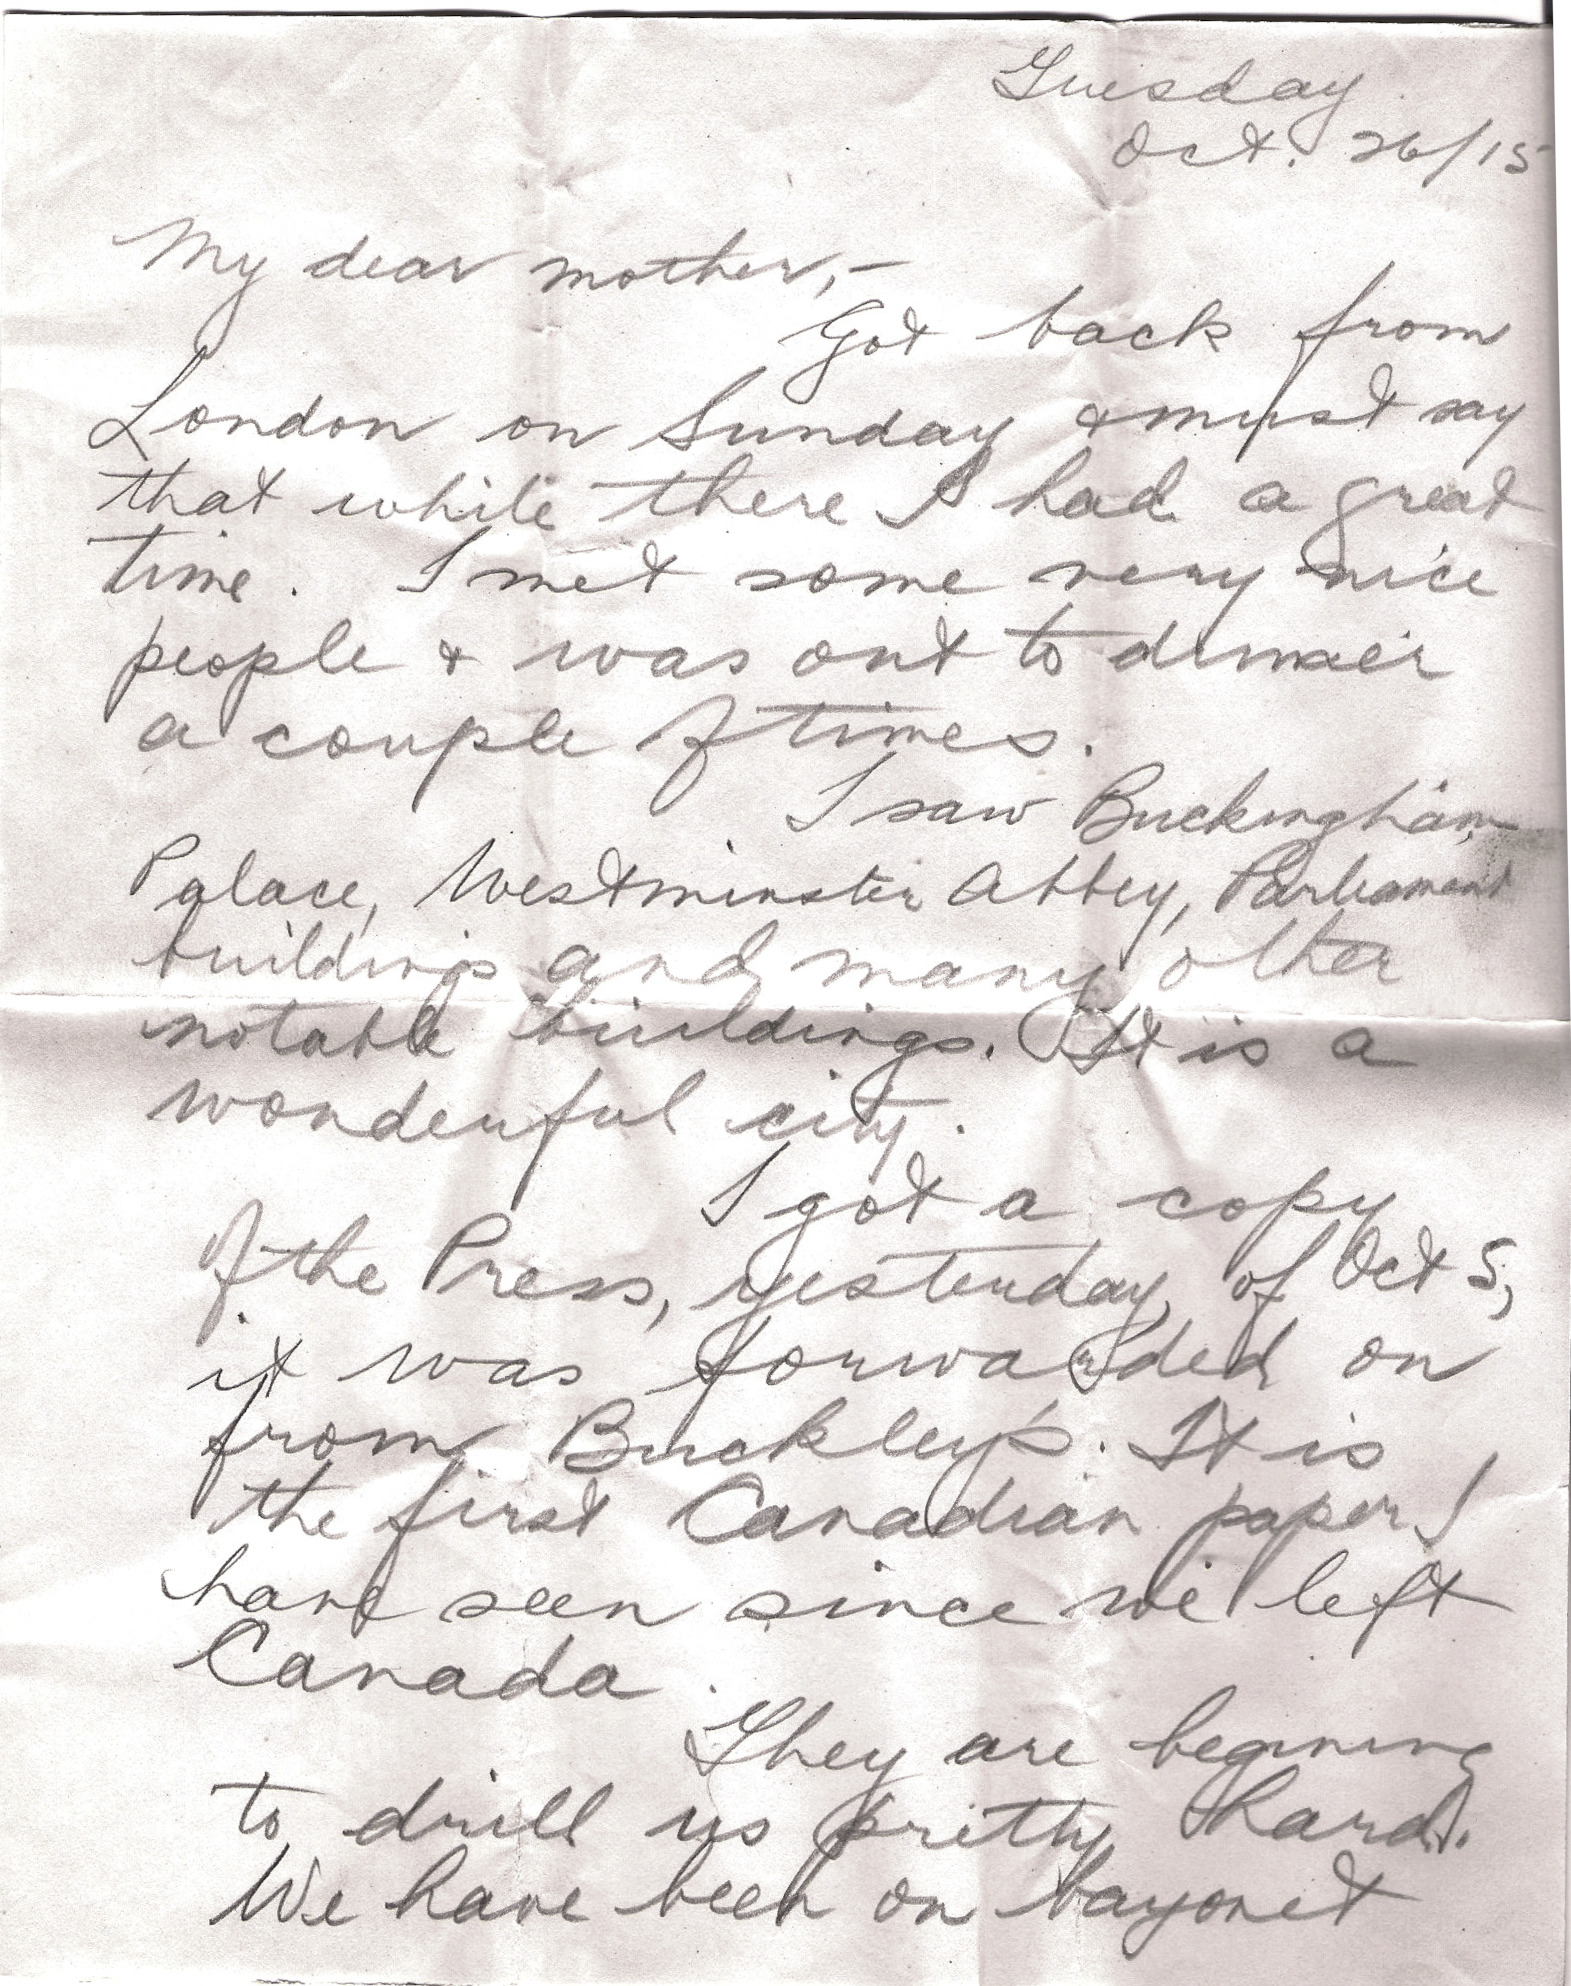 Tuesday
Oct. 26/15
My dear mother,-
Got back from
London on Sunday & must say
that while there I had a great
time. I met some very nice
people & was out to dinner
a couple of times.
I saw Buckingham
Palace, Westminster Abbey, Parliament
buildings and many other
notable buildings. It is a
wonderful city.
I got a copy
of the Press, yesterday, of Oct 5,
it was forwarded on
from Buckley's. It is
the first Canadian paper I
have seen since we left
Canada.
They are begining
to drill us pretty hard.
We have been on bayonet